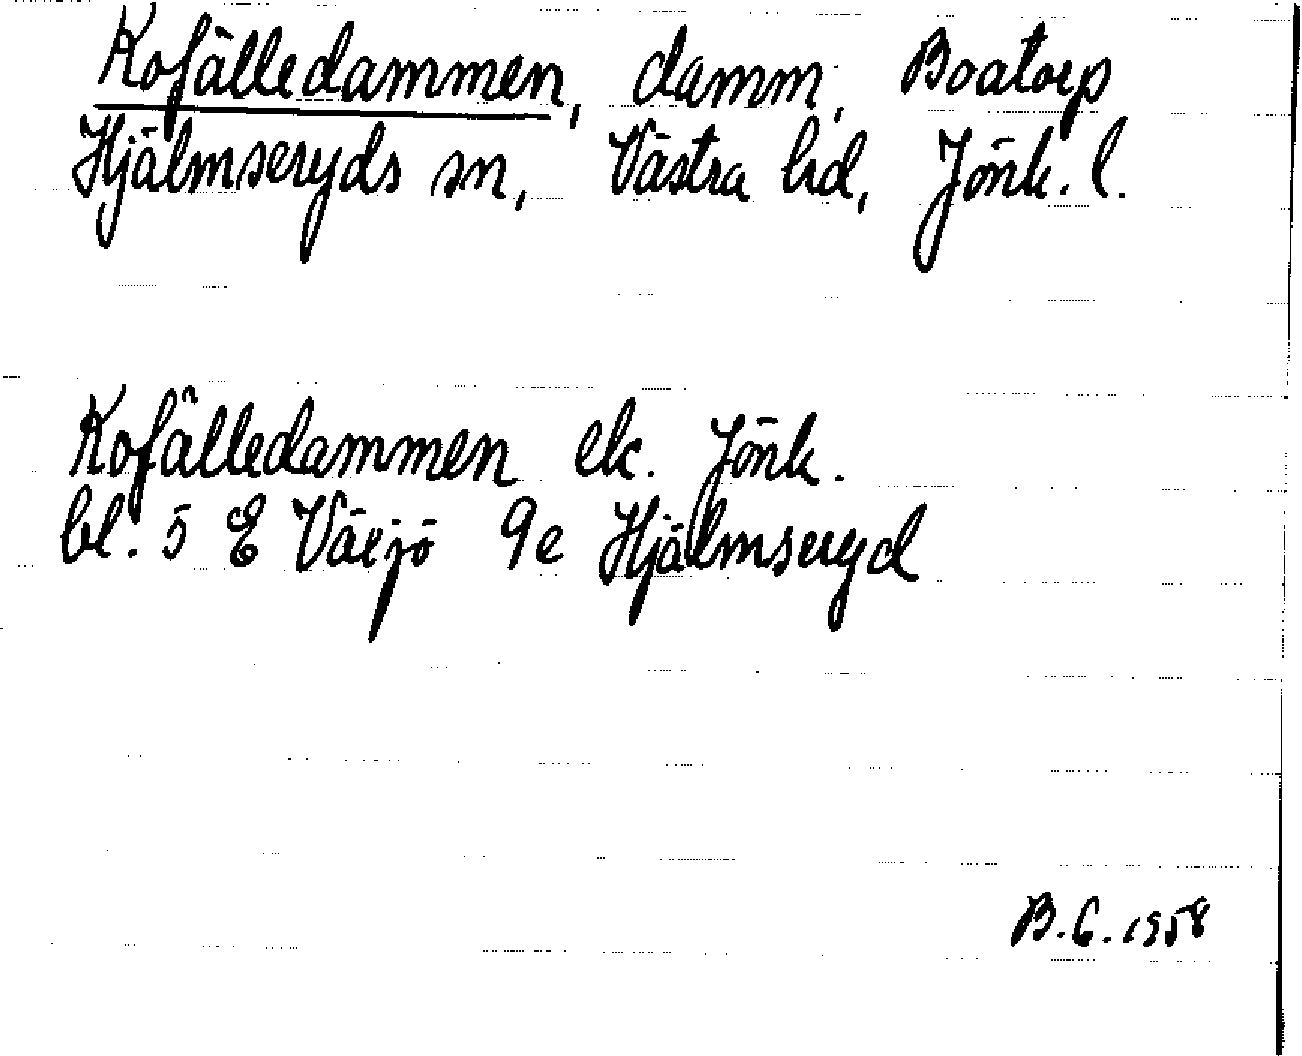 Kofälledammen, damm, Boatorp
Hjälmseryds sn, Västra hd, Jönk. l.
Kofälledammen ek. Jönk.
bl. 5 E Växjö 9e Hjälmseryd
B.G. 1958